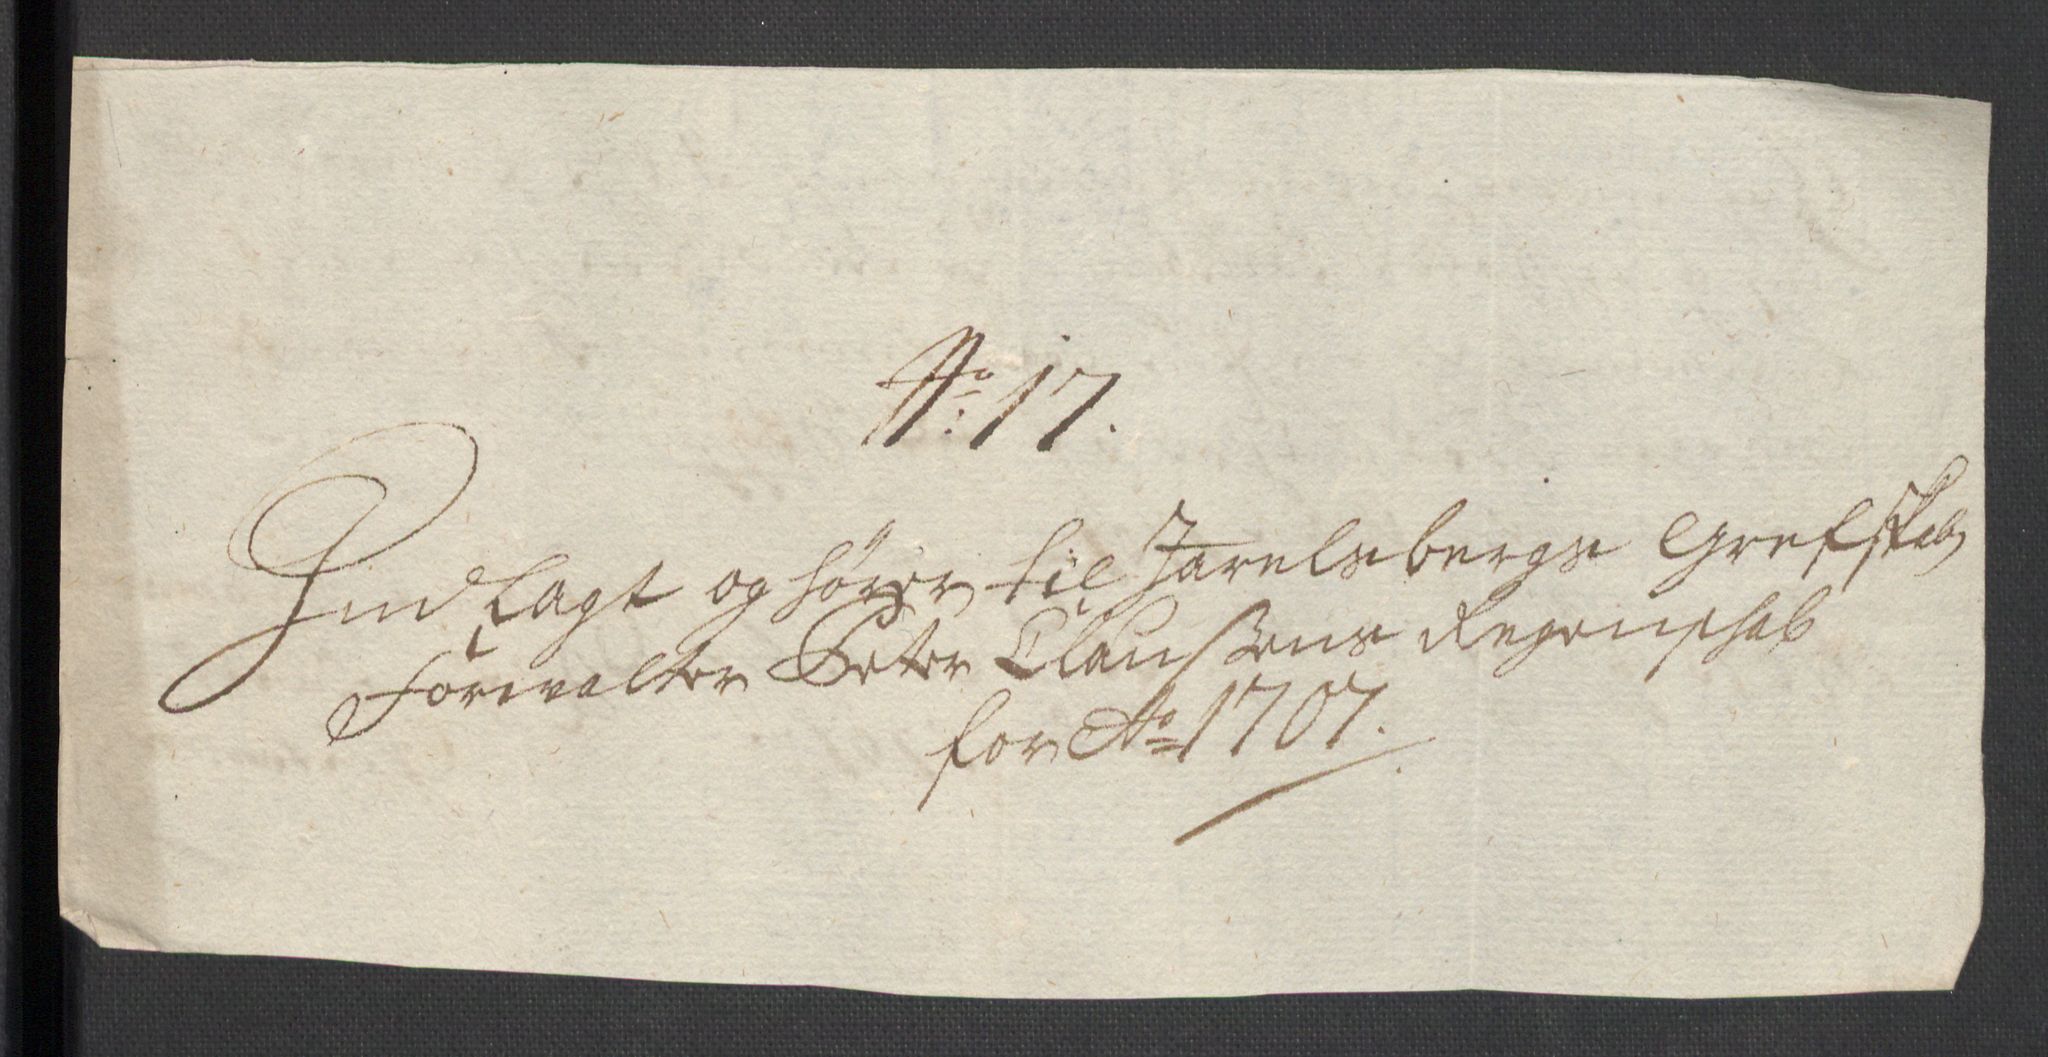 No: 17.
Indlagt og hører til Jarelsbergs Grefskab
Forwalter Peter Claussens Regenschab
for Ao 1707.